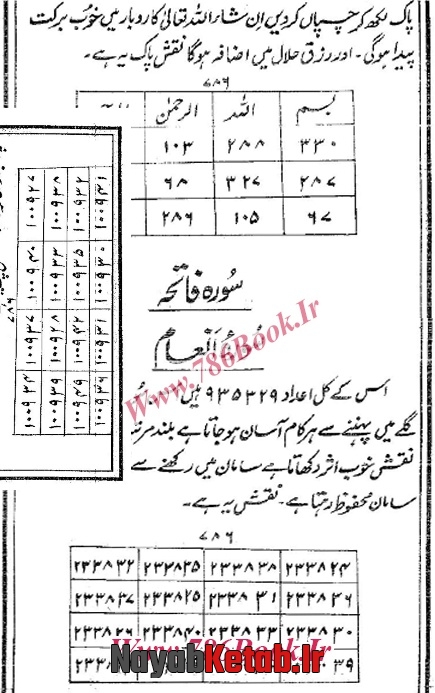 پاک لکھ کر چسپاں کر دیں ان شاء اللہ تعالیٰ کاروبار میں خوب برکت
پیدا ہوگی۔ اور رزق حلال میں اضافہ ہوگا نقش پاک یہ ہے۔
۷۸۶
بسم اللہ الرحمٰن
۳۳۰ ۲۸۸ ۱۰۳
۲۸۷ ۳۲۷ ۶۸
۶۷ ۱۰۵ ۲۸۶
سورہ فاتحہ
اس کے کل اعداد ۹۳۵۳۲۹ ہیں
گلے میں پہننے سے ہر کام آسان ہو جاتا ہے بلند مرتبہ
نقش خوب اثر دکھاتا ہے سامان میں رکھنے سے
سامان محفوظ رہتا ہے۔ نقش یہ ہے۔
۷۸۶
۲۳۳۸۲۴ ۲۳۳۸۳۸ ۲۳۳۸۳۵ ۲۳۳۸۳۲
۲۳۳۸۳۶ ۲۳۳۸۳۱ ۲۳۳۸۲۵ ۲۳۳۸۳۷
۲۳۳۸۳۰ ۲۳۳۸۳۳ ۲۳۳۸۴۰ ۲۳۳۸۲۶
۷۸۶
۱۰۰۹۴۱ ۱۰۰۹۳۰ ۱۰۰۹۳۱
۱۰۰۹۳۲ ۱۰۰۹۳۵ ۱۰۰۹۴۲
۱۰۰۹۳۸ ۱۰۰۹۳۳ ۱۰۰۹۲۸ ۱۰۰۹۳۹
۱۰۰۹۲۷ ۱۰۰۹۴۰ ۱۰۰۹۳۷ ۱۰۰۹۳۴
www.786Book.Ir
www.786Book.Ir
NayabKetab.Ir